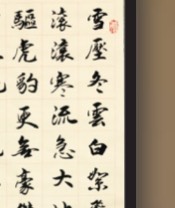 雪壓冬雲白絮
滾滾寒流急大
驅虎豹更無豪